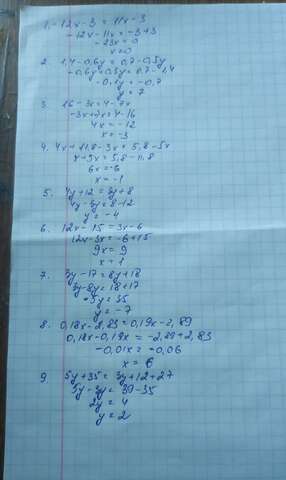 1. -12x-3 = 11x-3
-12x-11x = -3+3
-23x = 0
x=0
2. 1,4-0,6y = 0,7-0,5y
-0,6y+0,5y = 0,7-1,4
-0,1y = -0,7
y = 7
3. 16-3x = 4-7x
-3x+7x = 4-16
4x = -12
x = -3
4. 4x+11,8-3x = 5,8-5x
x+5x = 5,8-11,8
6x = -6
x = -1
5. 4y+12 = 3y+8
4y-3y = 8-12
y = -4
6. 12x-15 = 3x-6
12x-3x = -6+15
9x = 9
x = 1
7. 3y-17 = 8y+18
3y-8y = 18+17
-5y = 35
y = -7
8. 0,18x-2,83 = 0,19x-2,89
0,18x-0,19x = -2,89+2,83
-0,01x = -0,06
x = 6
9. 5y+35 = 3y+12+27
5y-3y = 39-35
2y = 4
y = 2